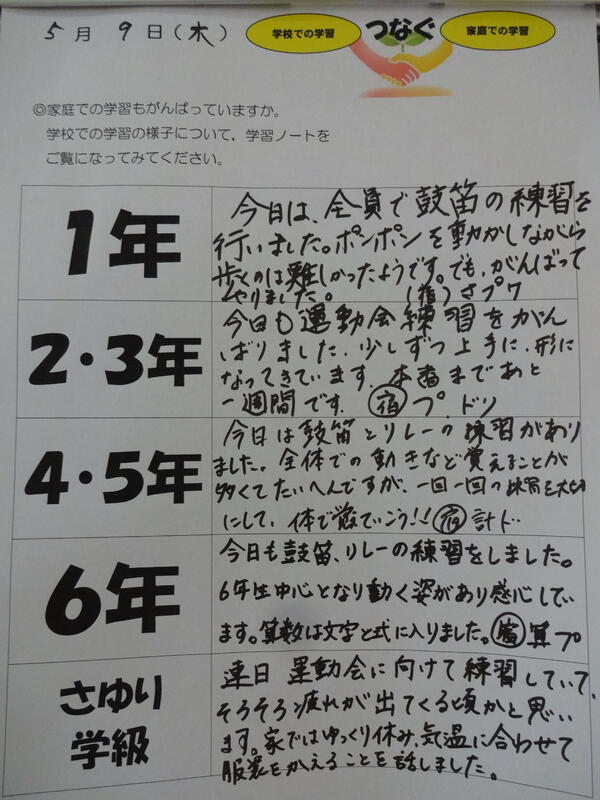 5月 9日(木)
学校での学習 つなぐ 家庭での学習
◎家庭での学習もがんばっていますか。
学校での学習の様子について,学習ノートを
ご覧になってみてください。
1年
今日は、全員で鼓笛の練習を
行いました。ポンポンを動かしながら
歩くのは難しかったようです。でも、がんばって
やりました。 (宿)さプワ
2・3年
今日も運動会練習をがん
ばりました.少しずつ上手に、形に
なってきています.本番まであと
一週間です. 宿 プ.ドリ
4・5年
今日は鼓笛とリレーの練習があり
ました。全体での動きなど覚えることが
多くてたいへんですが、一回一回の練習を大切
にして、体で覚えていこう!! 宿 計ド
6年
今日も鼓笛、リレーの練習をしました。
6年生中心となり動く姿があり感心してい
ます。算数は文字と式に入りました。宿 算プ
さゆり
学級
連日 運動会に向けて練習していて、
そろそろ疲れが出てくる頃かと思い
ます。家ではゆっくり休み、気温に合わせて
服装をかえることを話しました。